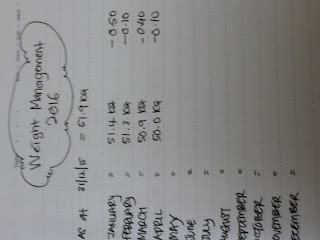 Weight Management
2016
AS AT = 51.9 KG
JANUARY = 51.4 KG -0.50
= 51.3 KG -0.10
MARCH = 50.9 KG -0.40
APRIL = KG -0.10
MAY =
JUNE =
JULY =
AUGUST =
EPTEMBER =
CTOBER =
OVEMBER =
ECEMBER =